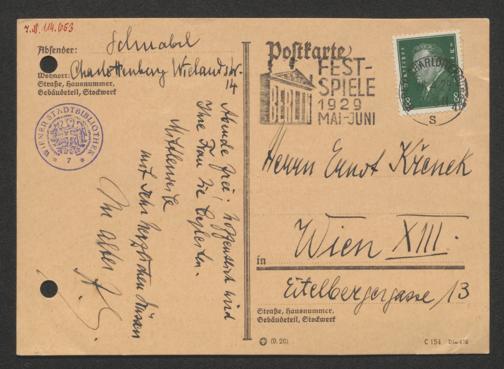 I.N. 114.063
Absender: Schnabel
Wohnort: Charlottenburg Wielandstr.
14
Straße, Hausnummer,
Gebäudeteil, Stockwerk
WIENER STADTBIBLIOTHEK
* 7 *
Abende frei; hoffentlich wird
Ihre Frau Sie begleiten.
Mittlerweile
mit sehr herzlichen Grüssen
Ihr alter
Postkarte
FEST-
SPIELE
1929
MAI-JUNI
CHARLOTTENBURG
S
DEUTSCHES REICH
8
Herrn Ernst Křenek
in Wien XIII.
Eitelbergergasse 13
Straße, Hausnummer,
Gebäudeteil, Stockwerk
C 154 Din 476